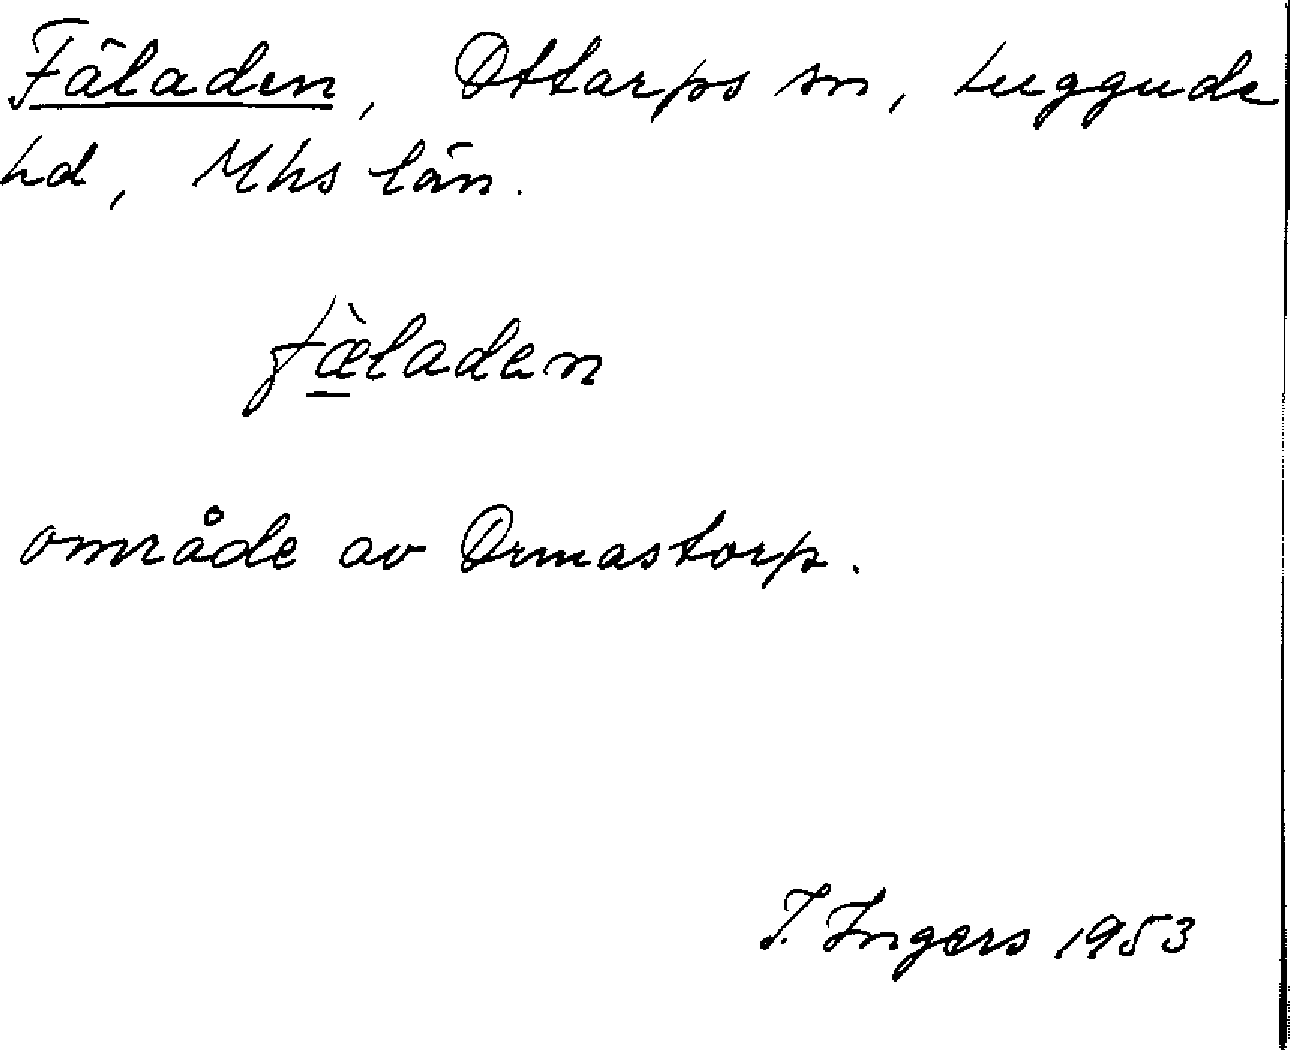 Fäladen, Ottarps sn, Luggude
hd, Mhs län.
fæ̠̀laden
område av Ormastorp.
I. Ingers 1953